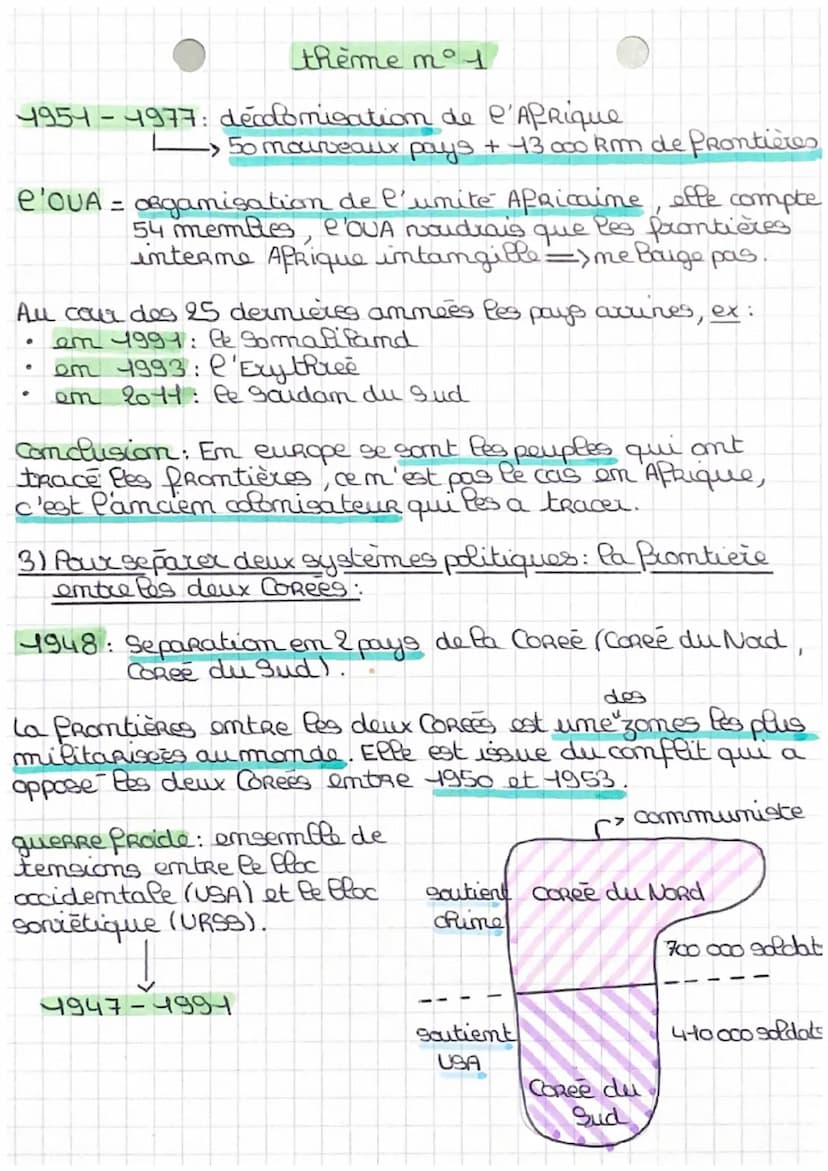 thème n° 1
1951 - 1977: décolonisation de l'Afrique
50 nouveaux pays + 13 000 km de frontières
l'OUA = organisation de l'unité Africaine, elle compte
54 membres, l'OUA voudrais que les frontières
interne Afrique intangible => ne bouge pas.
Au cour des 25 dernières années les pays arrives, ex:
• en 1991: le Somaliland
• en 1993: l'Erythreé
• en 2011: le Soudan du Sud
Conclusion: En europe se sont les peuples qui ont
tracé les frontières, ce n'est pas le cas en Afrique,
c'est l'ancien colonisateur qui les a tracer.
3) Pour séparer deux systèmes politiques: la frontière
entre les deux Coreés:
1948: Séparation en 2 pays de la Coreé (Coreé du Nord,
Coreé du Sud).
des
La frontières entre les deux Coreés est une "zones les plus
militariseés au monde. Elle est issue du conflit qui a
opposé les deux Coreés entre 1950 et 1953.
guerre froide: ensemble de
tensions entre le bloc
occidentale (USA) et le bloc
soviétique (URSS).
1947 - 1991
communiste
soutient
chine
Coreé du Nord
700 000 soldat
soutient
USA
410 000 soldats
Coreé du
Sud